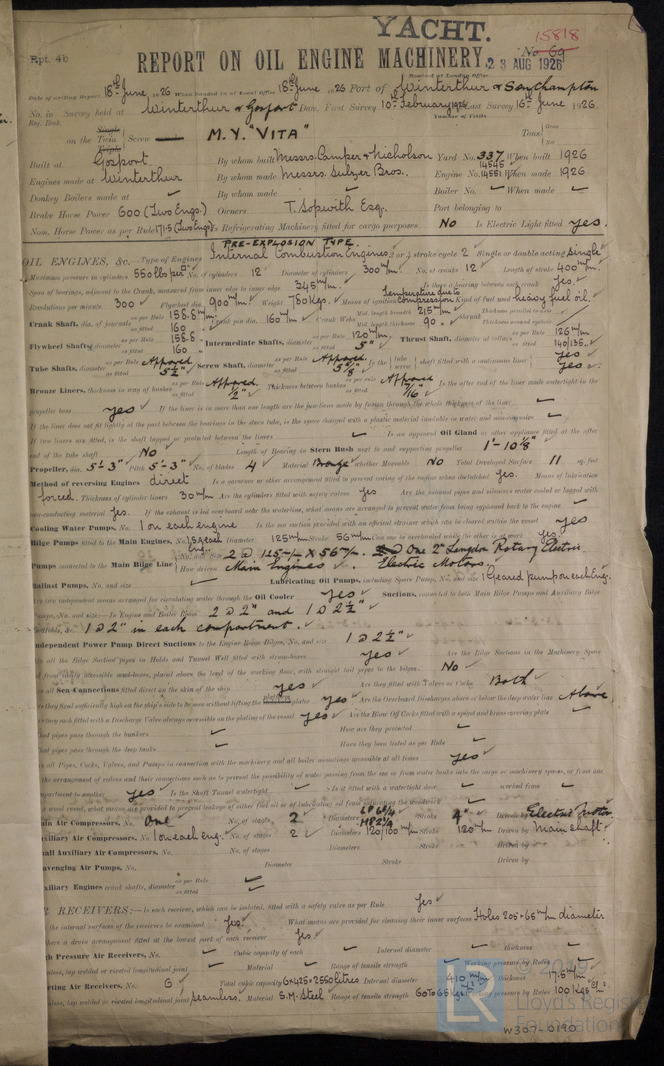 YACHT.
15818
Rpt. 4b
REPORT ON OIL ENGINE MACHINERY.
No 69
23 AUG 1926
Date of writing Report 18th June 1926 When handed in at Local Office 18th June 1926 Port of Winterthur & Southampton
No. in Survey held at Winterthur & Gosport Date, First Survey 10th February 1926 Last Survey 16th June 1926.
Reg. Book.
Number of Visits
Single
on the Twin Screw M.Y. "VITA" Tons
Triple
Gross
Net
Built at Gosport By whom built Messrs Camper & Nicholson Yard No. 337 When built 1926
Engines made at Winterthur By whom made Messrs Sulzer Bros. Engine No. 14545 14551 When made 1926
Donkey Boilers made at By whom made Boiler No. When made
Brake Horse Power 600 (Two Engs.) Owners T. Sopwith Esq. Port belonging to
Nom. Horse Power as per Rule 171.5 (Two Engs) Is Refrigerating Machinery fitted for cargo purposes No Is Electric Light fitted yes.
PRE-EXPLOSION TYPE.
OIL ENGINES, &c.—Type of Engines Internal Combustion Engines 2 or 4 stroke cycle 2 Single or double acting Single
Maximum pressure in cylinders 550 lbs per No. of cylinders 12 Diameter of cylinders 300 m/m No. of cranks 12 Length of stroke 400 m/m
Span of bearings, adjacent to the Crank, measured from inner edge to inner edge 345 m/m Is there a bearing between each crank Yes
Revolutions per minute 300 Flywheel dia. 900 m/m Weight 780 kgs. Means of ignition temperature due to compression Kind of fuel used heavy fuel oil.
Crank Shaft, dia. of journals as per Rule 158.8 m/m as fitted 160 Crank pin dia. 160 m/m Crank Webs Mid. length breadth 215 m/m Mid. length thickness 90
Flywheel Shaft, diameter as per Rule 158.8 as fitted 160 Intermediate Shafts, diameter as per Rule 120 m/m as fitted 5" Thrust Shaft, diameter at collars as per Rule 126 m/m as fitted 140/135
Tube Shafts, diameter as per Rule Approved as fitted 5½" Screw Shaft, diameter as per Rule Approved as fitted 5⅝" Is the tube screw shaft fitted with a continuous liner Yes Yes
Bronze Liners, thickness in way of bushes as per Rule Approved as fitted ½" Thickness between bushes as per rule Approved as fitted 7/16" Is the after end of the liner made watertight in the
propeller boss yes If the liner is in more than one length are the junctions made by fusion through the whole thickness of the liner
If the liner does not fit tightly at the part between the bearings in the stern tube, is the space charged with a plastic material insoluble in water and non-corrosive
If two liners are fitted, is the shaft lapped or protected between the liners Is an approved Oil Gland or other appliance fitted at the after
end of the tube shaft No Length of Bearing in Stern Bush next to and supporting propeller 1'-10⅛"
Propeller, dia. 5'-3" Pitch 5'-3" No. of blades 4 Material Bronze whether Moveable No Total Developed Surface 11 sq. feet
Method of reversing Engines direct Is a governor or other arrangement fitted to prevent racing of the engine when declutched Yes. Means of lubrication
forced. Thickness of cylinder liners 30 m/m Are the cylinders fitted with safety valves Yes Are the exhaust pipes and silencers water cooled or lagged with
non-conducting material Yes. If the exhaust is led overboard near the waterline, what means are arranged to prevent water from being syphoned back to the engine
Cooling Water Pumps, No. 1 on each engine Is the sea suction provided with an efficient strainer which can be cleared within the vessel Yes
Bilge Pumps fitted to the Main Engines, No. 1 on each Eng. Diameter 125 m/m Stroke 56 m/m Can one be overhauled while the other is at work Yes
Pumps connected to the Main Bilge Line No. and Size 2 @ 125 m/m x 56 m/m. One 2" Langdon Rotary Electric
How driven Main Engines. Electric Motors.
Ballast Pumps, No. and size Lubricating Oil Pumps, including Spare Pump, No. and size 1 Geared pump on each Eng.
two independent means arranged for circulating water through the Oil Cooler Yes Suctions, connected to both Main Bilge Pumps and Auxiliary Bilge
Pumps, No. and size:—In Engine and Boiler Room 2 @ 2" and 1 @ 2½"
1 @ 2" in each compartment.
Independent Power Pump Direct Suctions to the Engine Room Bilges, No. and size 1 @ 2½"
all the Bilge Suction pipes in Holds and Tunnel Well fitted with strum-boxes Yes Are the Bilge Suctions in the Machinery Space
from easily accessible mud-boxes, placed above the level of the working floor, with straight tail pipes to the bilges. No
all Sea Connections fitted direct on the skin of the ship yes Are they fitted with Valves or Cocks Both
they fixed sufficiently high on the ship's side to be seen without lifting the platform plates yes Are the Overboard Discharges above or below the deep water line Above
they each fitted with a Discharge Valve always accessible on the plating of the vessel Yes Are the Blow Off Cocks fitted with a spigot and brass covering plate
What pipes pass through the bunkers How are they protected
What pipes pass through the deep tanks Have they been tested as per Rule
all Pipes, Cocks, Valves, and Pumps in connection with the machinery and all boiler mountings accessible at all times Yes
the arrangement of valves and their connections such as to prevent the possibility of water passing from the sea or from water tanks into the cargo or machinery spaces, or from one
compartment to another Yes Is the Shaft Tunnel watertight Is it fitted with a watertight door worked from
Main Air Compressors, No. One No. of stages 2 Diameters LP 6¾ HP 2¾ Stroke 4" Driven by Electric Motor
Auxiliary Air Compressors, No. 1 on each eng. No. of stages 2 Diameters 120/160 m/m Stroke 120 m/m Driven by Main shaft
Small Auxiliary Air Compressors, No. No. of stages Diameters Stroke Driven by
Scavenging Air Pumps, No. Diameter Stroke Driven by
Auxiliary Engines crank shafts, diameter as per Rule as fitted
RECEIVERS:—Is each receiver, which can be isolated, fitted with a safety valve as per Rule Yes
the internal surfaces of the receivers be examined Yes. What means are provided for cleaning their inner surfaces Holes 205 x 65 m/m diameter
there a drain arrangement fitted at the lowest part of each receiver Yes
High Pressure Air Receivers, No. Cubic capacity of each Internal diameter thickness
Seamless, lap welded or riveted longitudinal joint Material Range of tensile strength Working pressure by Rules
Starting Air Receivers, No. 6 Total cubic capacity 6 x 425 = 2550 litres Internal diameter 410 m/m thickness 17.5 m/m
Seamless, lap welded or riveted longitudinal joint Seamless. Material S.M. Steel Range of tensile strength 60 to 65 kgs Working pressure by Rules 100 kgs
© 2019
LR
Lloyd's Register
Foundation
W307-0190